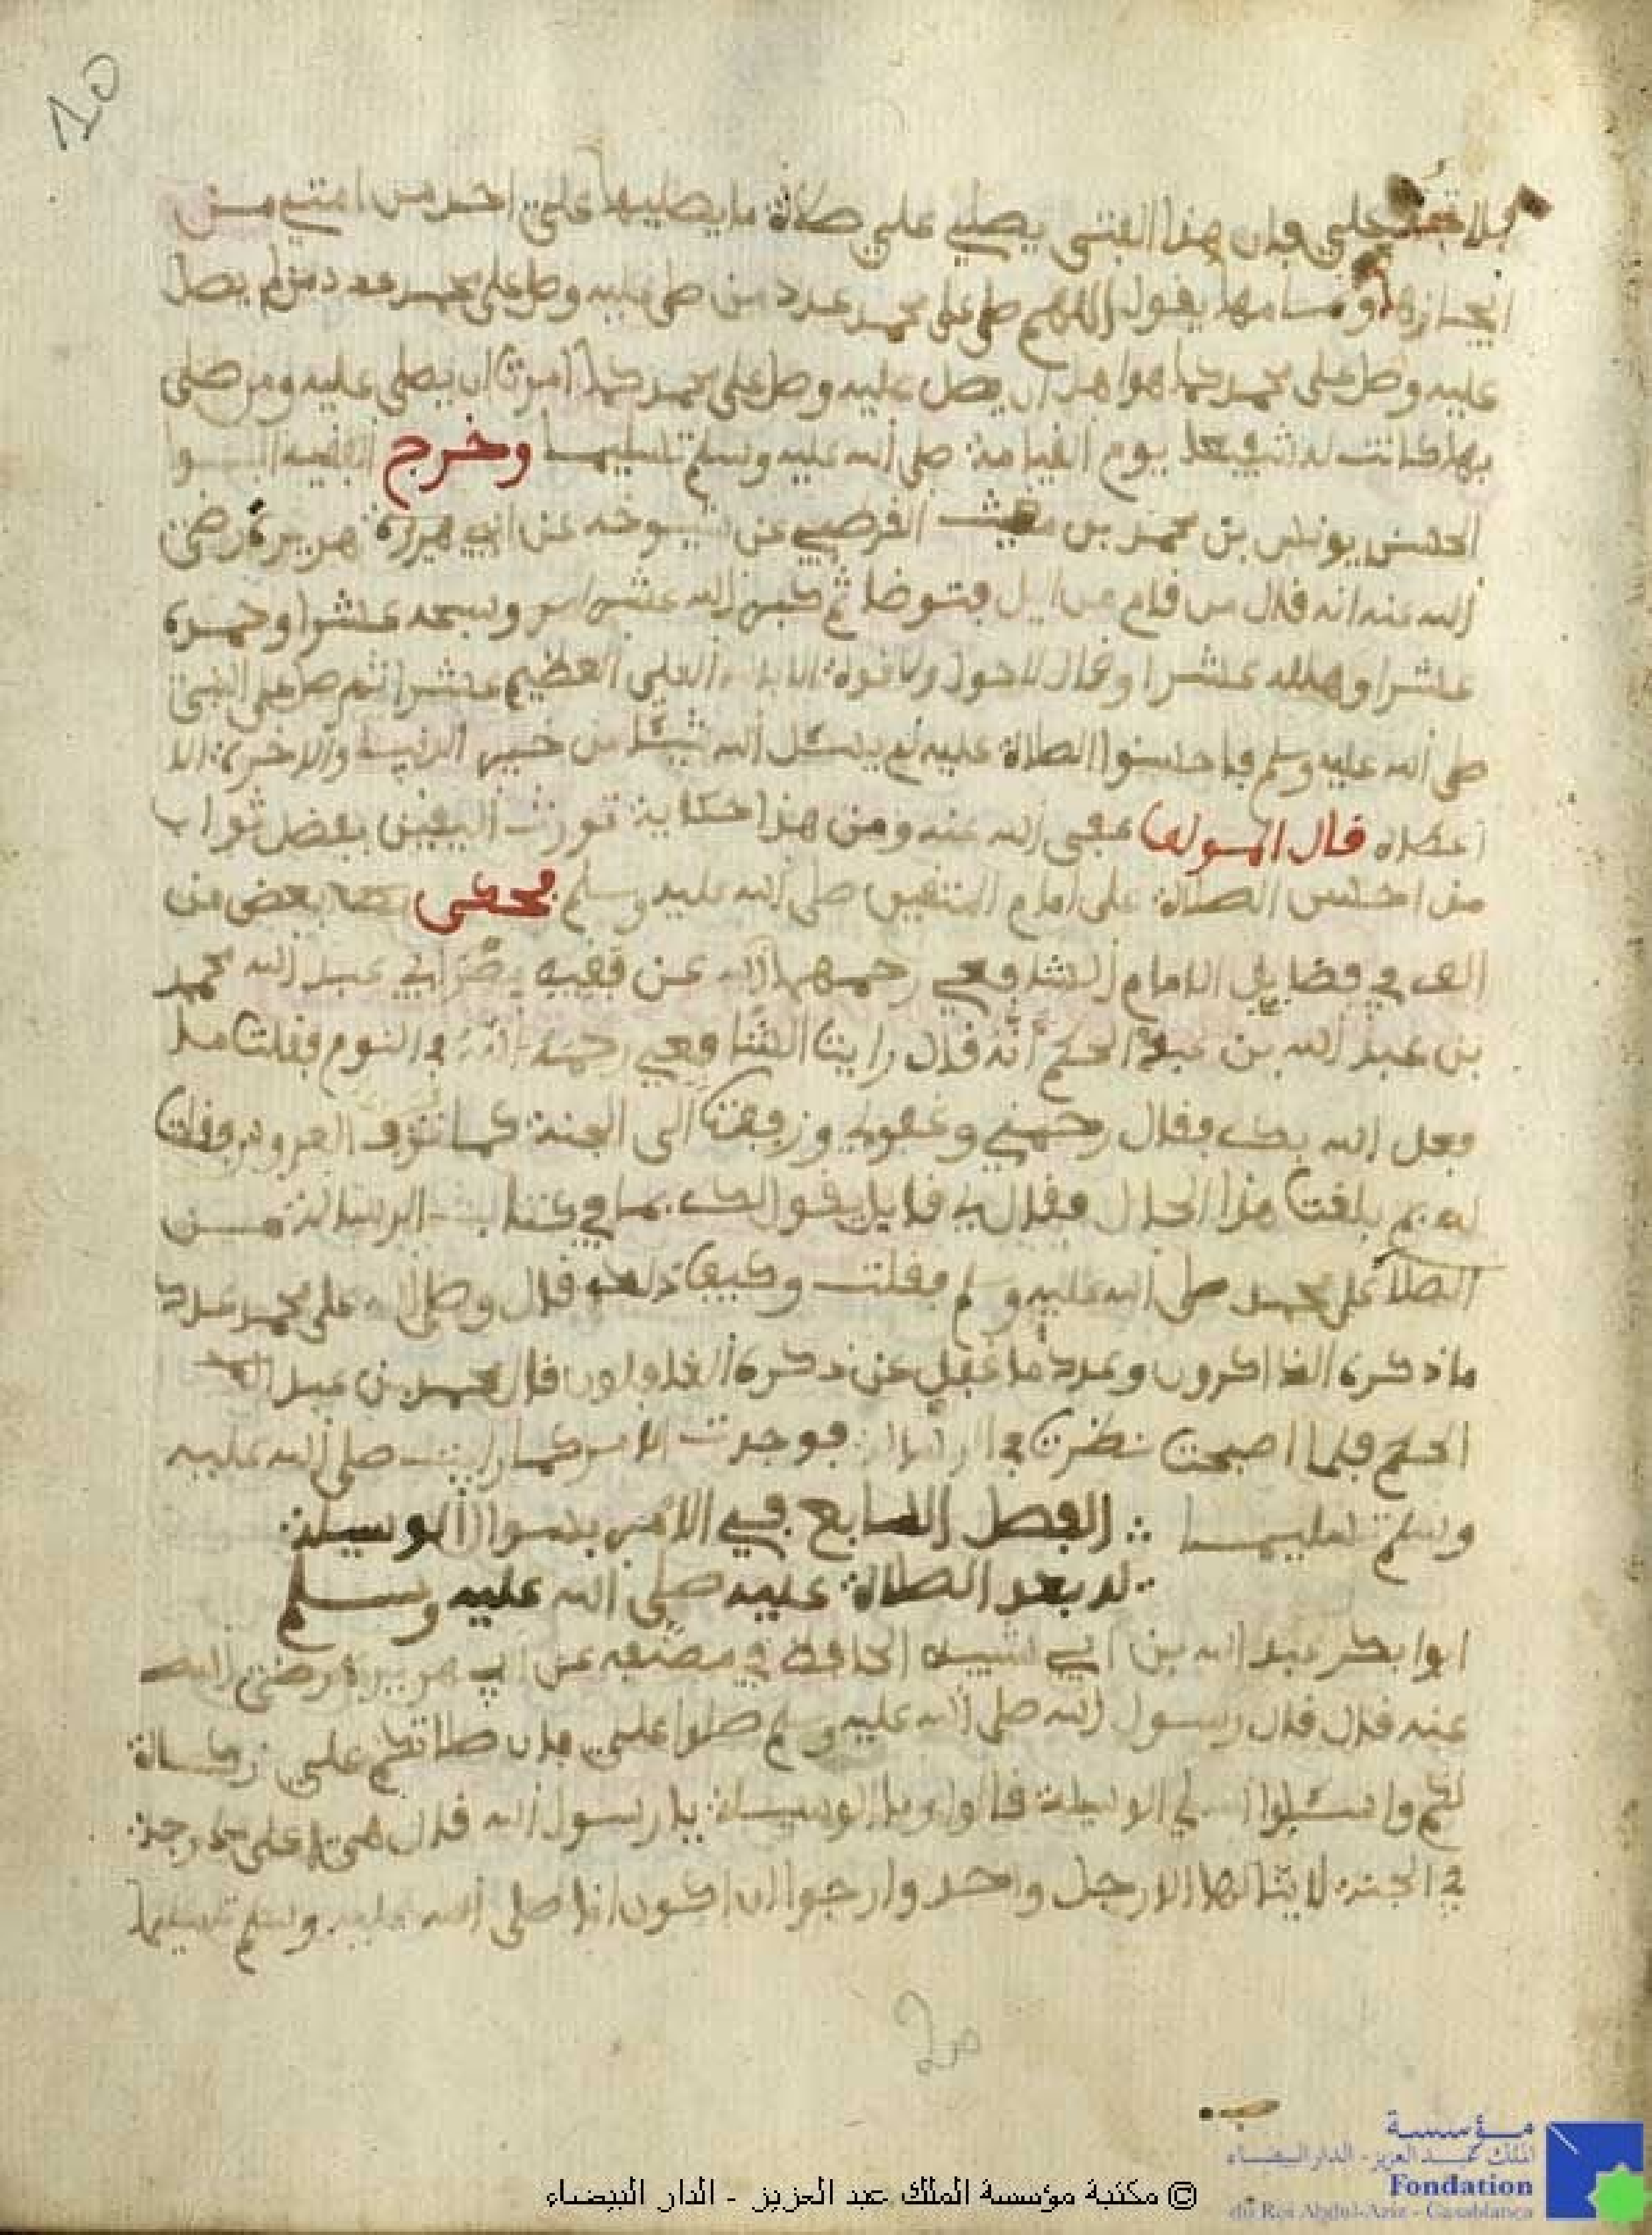 10
علي فان هذا الفتى يصلي علي صلاة ما يصليها علي احد من امتي من
انجازها ومسامها يقول اللهم صل على محمد عدد من صلى عليه وصل على محمد عدد من لم يصل
عليه وصل على محمد كما هو اهل ان يصل عليه وصل على محمد كما امرت ان يصلى عليه ومن صلى
بها كانت له شفيعا يوم القيامة صلى الله عليه وسلم تسليما وخرج الفقيه ابــو
الحسن يونس بن محمد بن مغيث القرضبي عن شيوخه عن ابي هريرة هريرة رضي
الله عنه انه قال من قام من اليل فتوضا ثم كبر الله عشرا وسبحه عشرا وحمده
عشرا وهلله عشرا وقال لا حول ولا قوة الا بالله العلي العظيم عشرا ثم صل على النبي
صلى الله عليه وسلم فاحسنوا الصلاة عليه لم يسئل الله شيئا من خير الدنيا والاخرة الا
اعطاه قال المولف عفى الله عنه ومن هذا حكاية تورث اليقين بفضل ثواب
من احسن الصلاة على امام المتقين صلى الله عليه وسلم فحكى بعض من
الف في فضايل الامام الشافعي رحمهما الله عن فقيه مصر ابي عبد الله محمد
بن عبد الله بن عبد الحكم انه قال رايت الشافعي رحمه الله في النوم فقلت ما
فعل الله بك فقال رحمني وغفر لي وزففت الى الجنة كما تزف العروس وقلت
له بم بلغت هذا الحال فقال لي قايل يقول لك بما في كتاب الرسالة مــن
الصلاة على محمد صلى الله عليه وسلم فقلت وكيف ذلك قال وصلى الله على محمد عدد
ما ذكره الذاكرون وعدد ما غفل عن ذكره الغافلون قال محمد بن عبد الله
الحكم فلما اصبحت نظرت في الرسالة فوجدت الامر كما رايت صلى الله عليه
وسلم تسليما ∴ الفصل السابع في الامر بسوال الوسيلة
له بعد الصلاة عليه صلى الله عليه وسلم
ابوا بكر عبد الله بن ابي شيبه الحافظ في مصنفه عن ابي هريرة رضي الله
عنه قال قال رسول الله صلى الله عليه وسلم صلوا علي فان صلاتكم علي زكاة
لكم واسئلوا الله لي الوسيلة قالوا وما الوسيلة يا رسول الله قال هي اعلى درجة
في الجنة لا ينالها الا رجل واحد وارجوا ان اكون انا صلى الله عليه وسلم تسليما
مؤسسة
الملك عبد العزيز - الدار البيضاء
Fondation
du Roi Abdul-Aziz - Casablanca
© مكتبة مؤسسة الملك عبد العزيز - الدار البيضاء